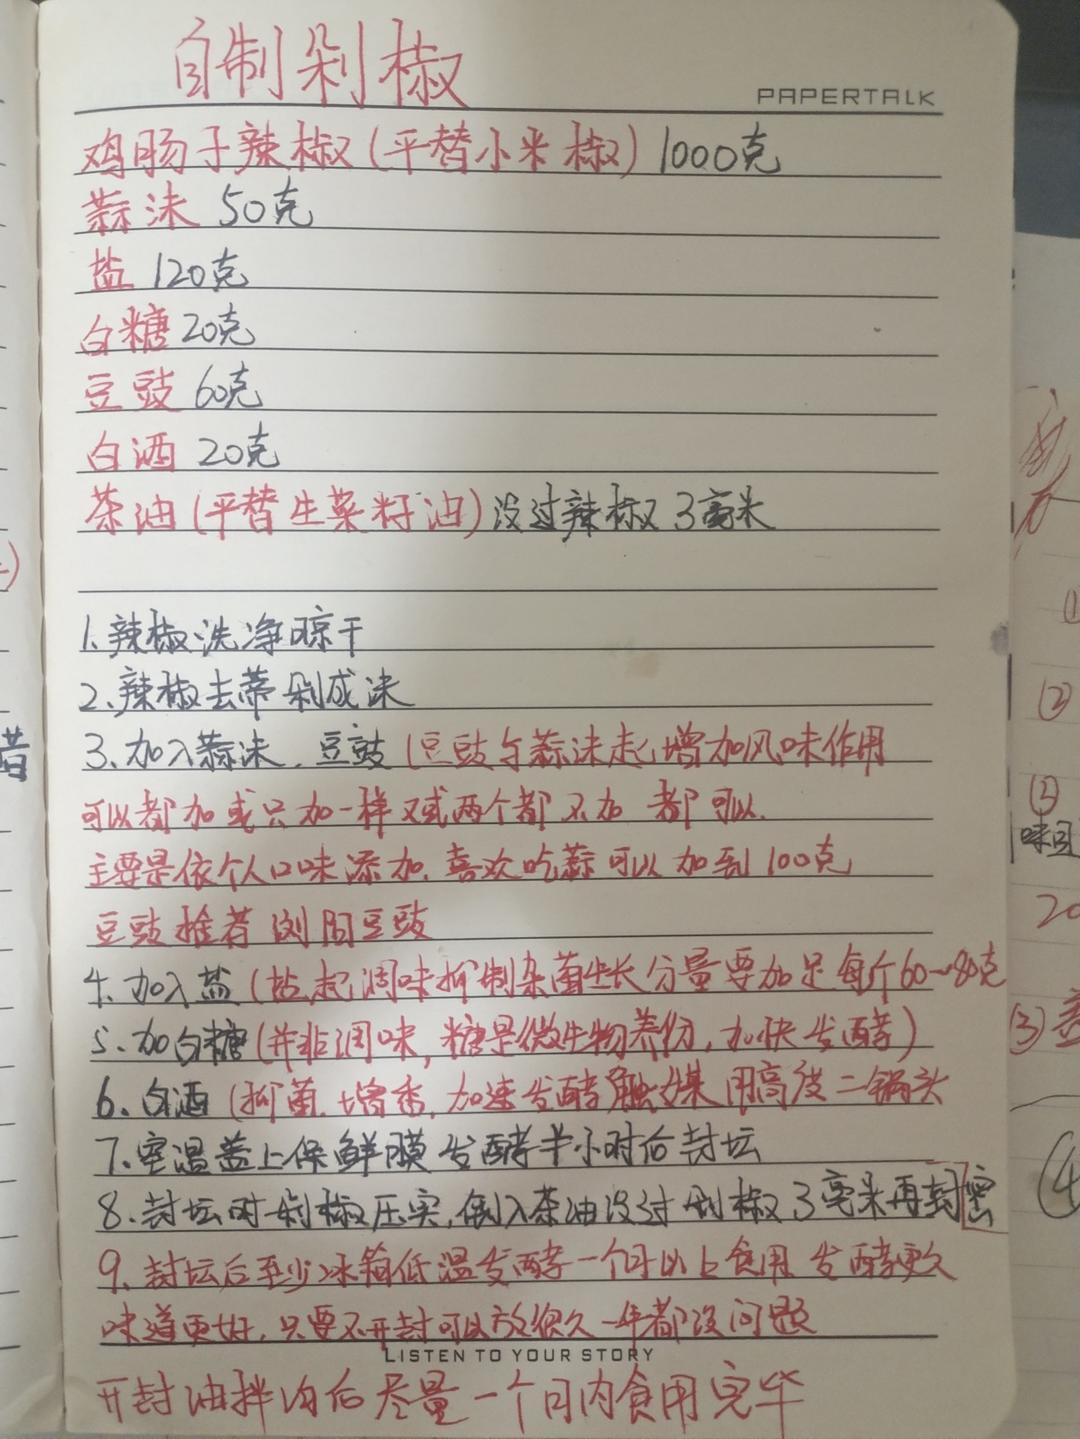 自制剁椒
PAPERTALK
鸡肠子辣椒(平替小米椒) 1000克
蒜沫 50克
盐 120克
白糖 20克
豆豉 60克
白酒 20克
茶油(平替生菜籽油)没过辣椒 3毫米
1、辣椒洗净晾干
2、辣椒去蒂剁成沫
3、加入蒜沫、豆豉(豆豉与蒜沫起增加风味作用
可以都加或只加一样又或两个都不加 都可以.
主要是依个人口味添加.喜欢吃蒜可以加到100克
豆豉推荐浏阳豆豉
4、加入盐(盐起调味抑制杂菌生长分量要加足每斤60-80克
5、加白糖(并非调味,糖是微生物养份,加快发酵)
6、白酒(抑菌.增香.加速发酵触媒用高度二锅头
7、室温盖上保鲜膜发酵半小时后封坛
8、封坛时剁椒压实,倒入茶油没过剁椒3毫米再封密
9、封坛后至少冰箱低温发酵一个月以上食用 发酵更久
味道更好,只要不开封可以放很久一年都没问题
LISTEN TO YOUR STORY
开封油拌均后尽量一个月内食用完毕
①
②
②
味且
20
③
④
昔